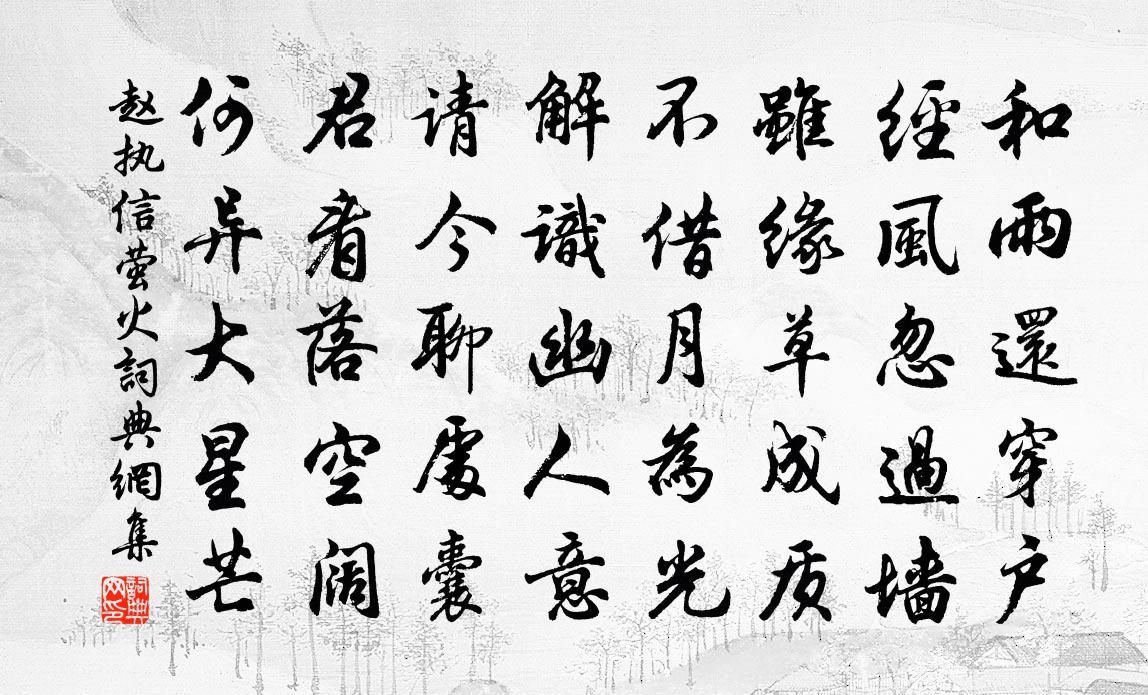 和雨還穿户
經風忽過墙
雖緣草成质
不借月為光
解識幽人意
请今聊處囊
君看落空阔
何异大星芒
赵执信萤火詞典網集
詞典网印